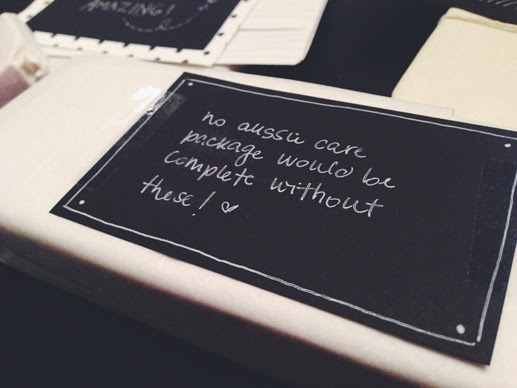 AMAZING!
no aussie care
package would be
complete without
these! ♡